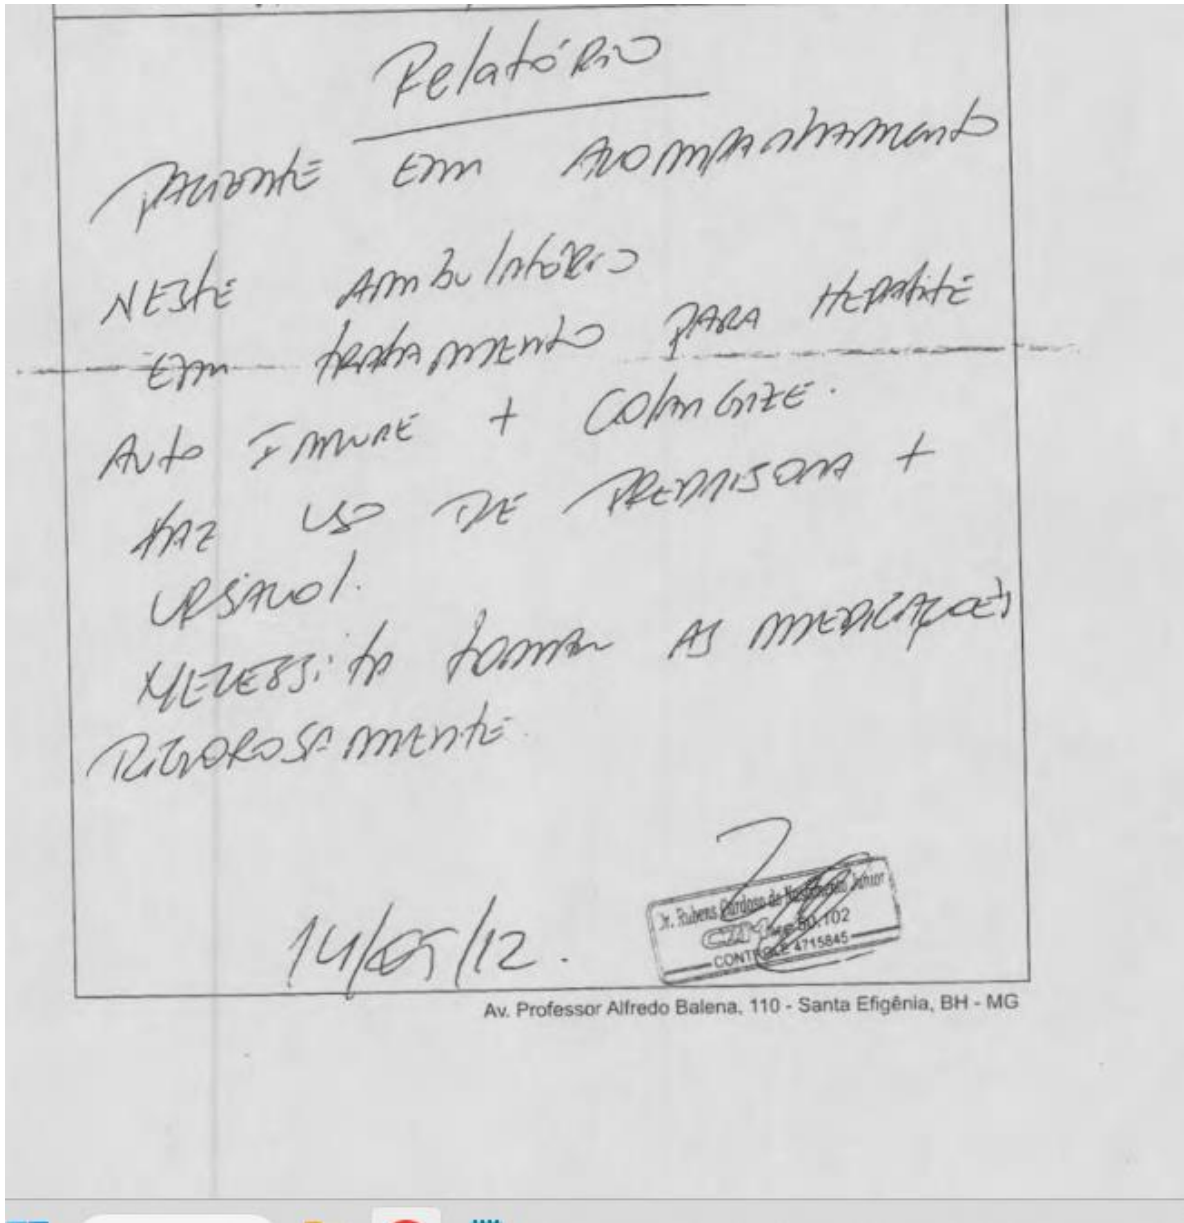 Relatório
PACIENTE EM ACOMPANHAMENTO
NESTE AMBULATÓRIO
EM TRATAMENTO PARA HEPATITE
AUTO IMUNE + COLANGITE.
FAZ USO DE PREDNISONA +
URSACOL.
NECESSITA TOMAR AS MEDICAÇÕES
RIGOROSAMENTE.
Dr. Rubens Cardoso do Nascimento Junior
102
CONTROLE 4715845
14/05/12.
Av. Professor Alfredo Balena, 110 - Santa Efigênia, BH - MG